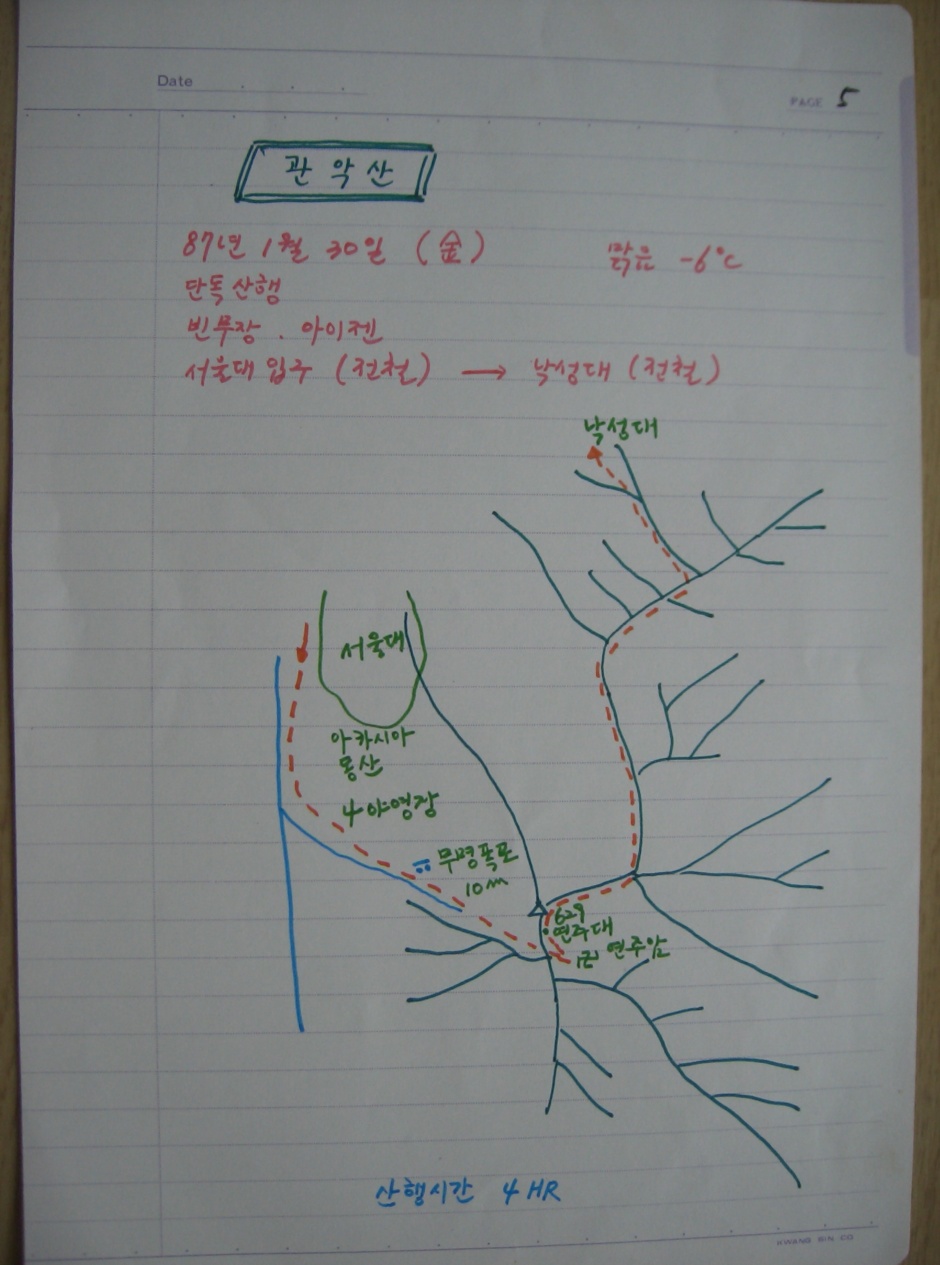 Date
PAGE 5
관악산
87년 1월 30일 (金) 맑음 -6°C
단독산행
빈무장 . 아이젠
서울대 입구 (전철) → 낙성대 (전철)
낙성대
서울대
아카시아
동산
4 야영장
무명폭포
10m
629
연주대
연주암
산행시간 4 HR
KWANG SIN. CO